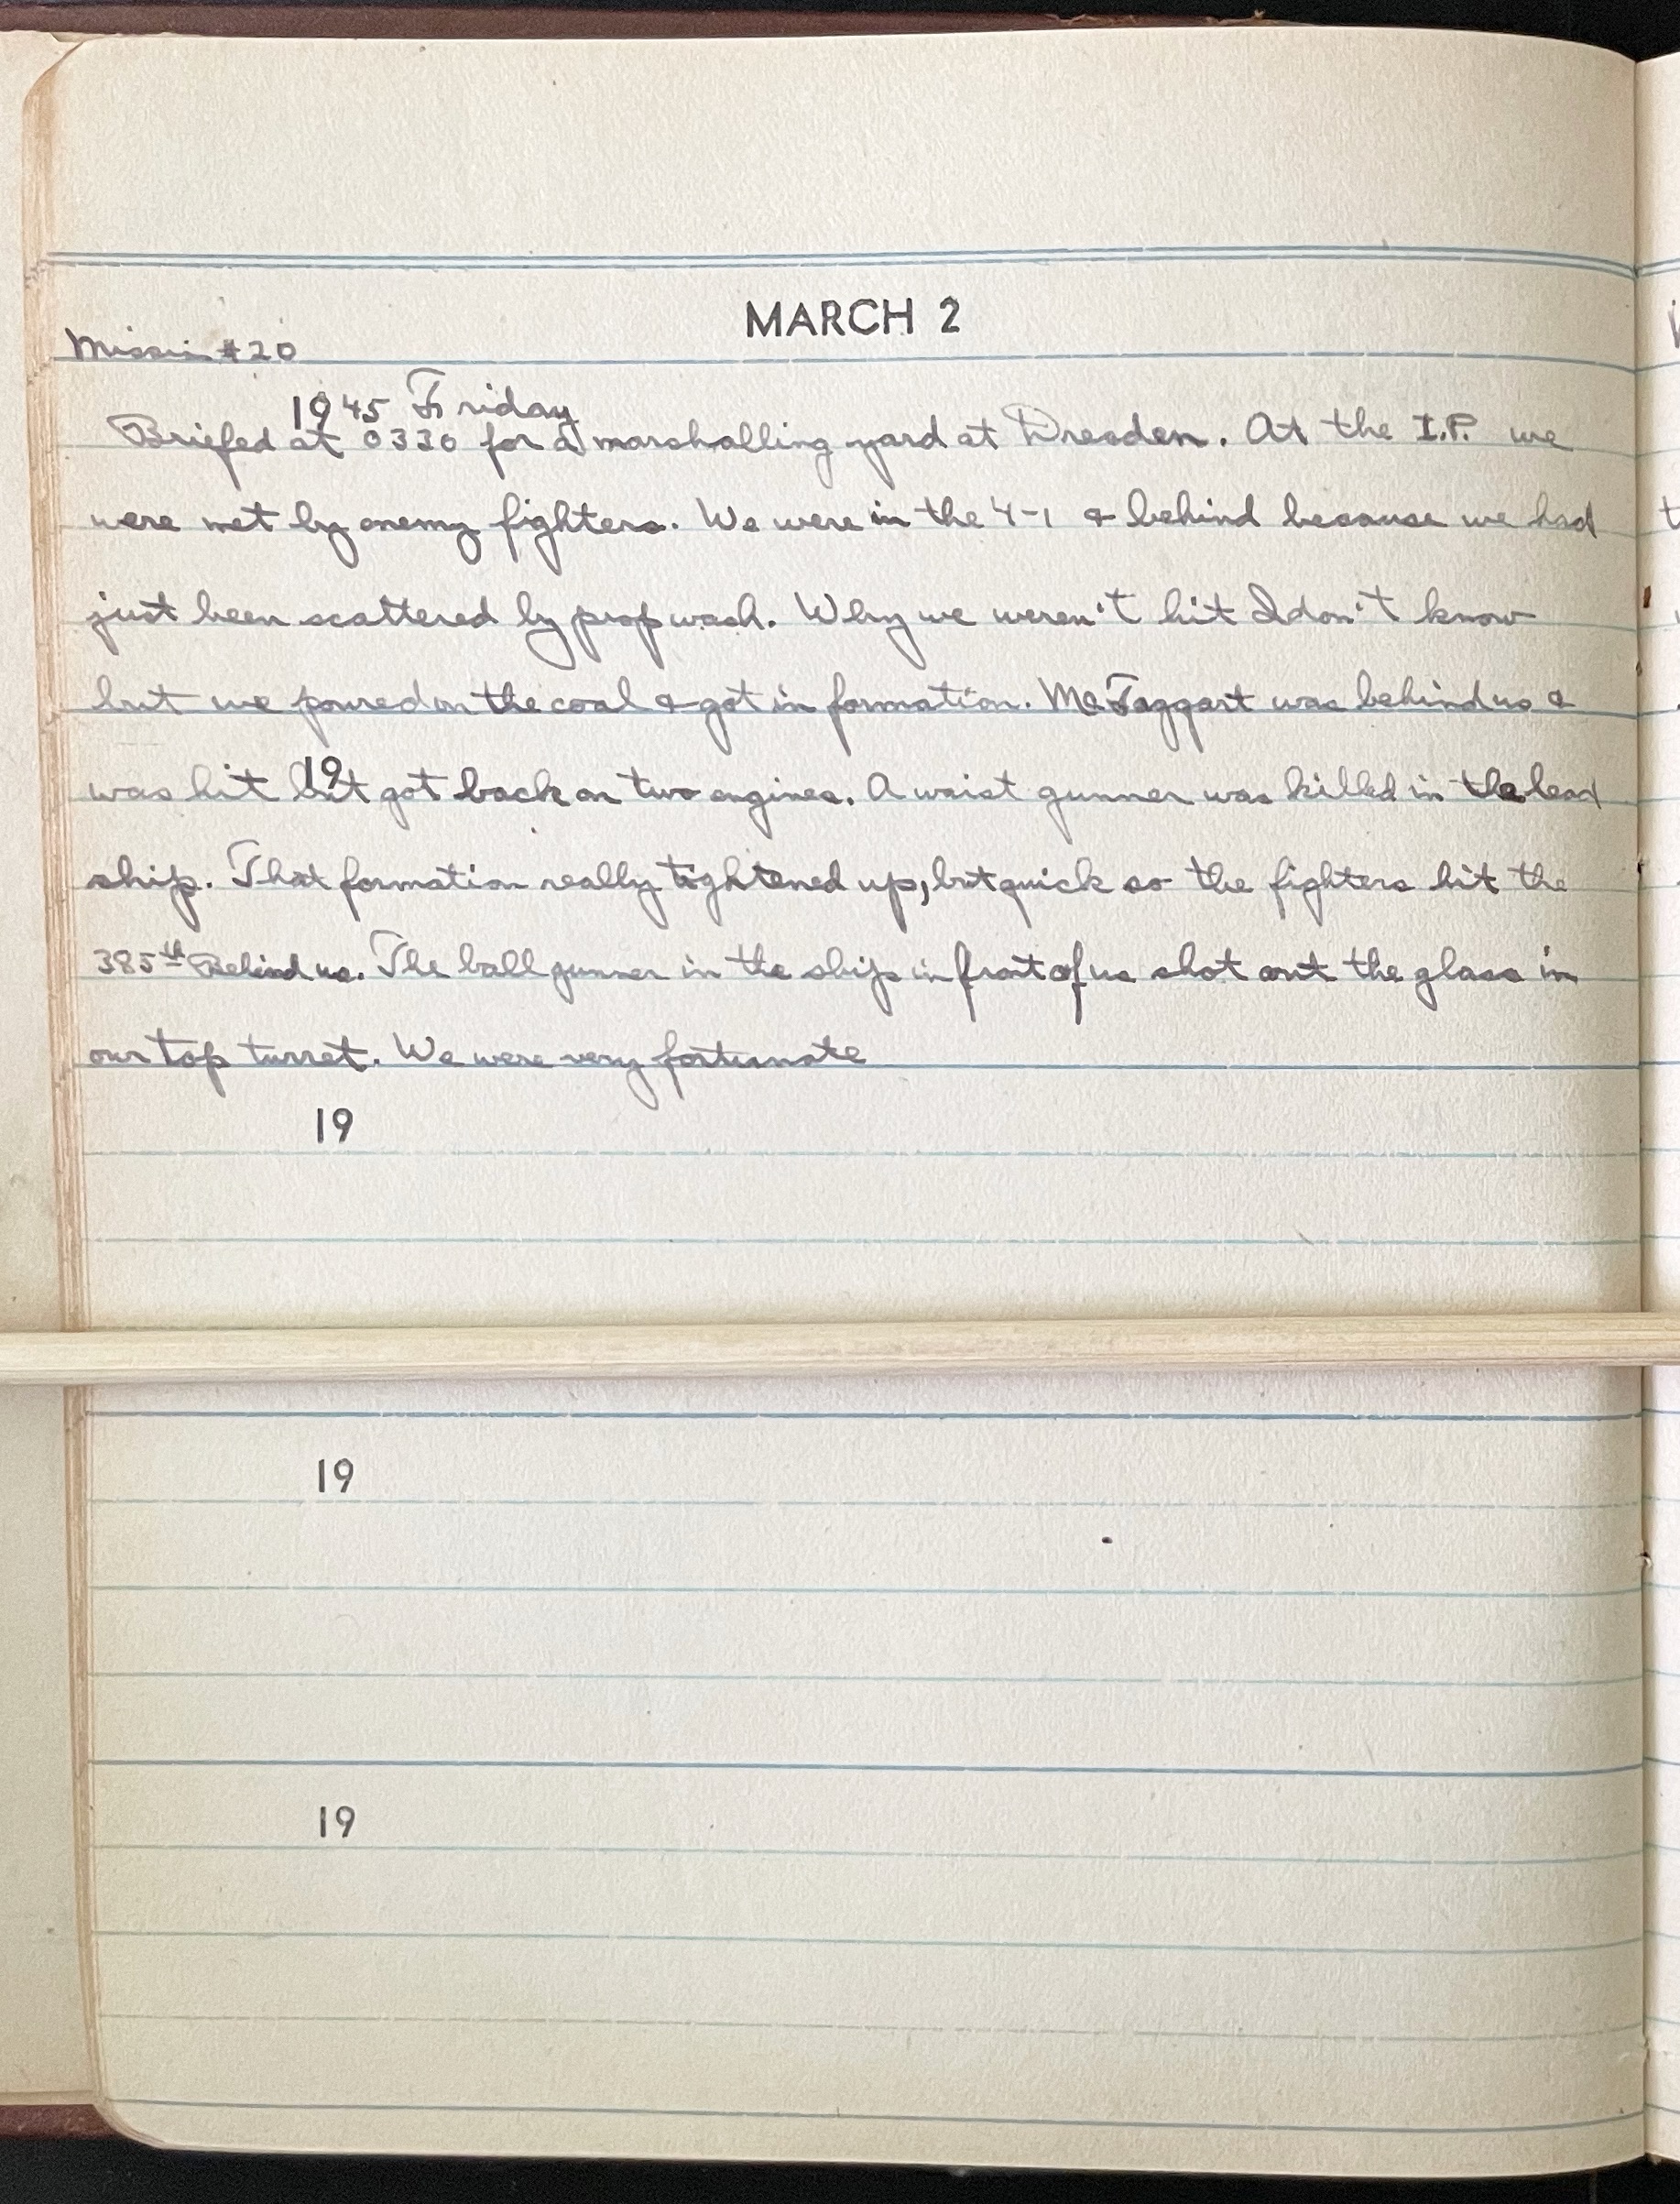 MARCH 2
Mission #20
1945 Friday
Briefed at 0330 for a marshalling yard at Dresden. At the I.P. we
were met by enemy fighters. We were in the 4-1 & behind because we had
just been scattered by prop wash. Why we weren't hit I don't know
but we poured on the coal & got in formation. McTaggart was behind us &
19
was hit but got back on two engines. A waist gunner was killed in the lead
ship. That formation really tightened up, but quick so the fighters hit the
385th Behind us. The ball gunner in the ship in front of us shot out the glass in
our top turret. We were very fortunate
19
19
19